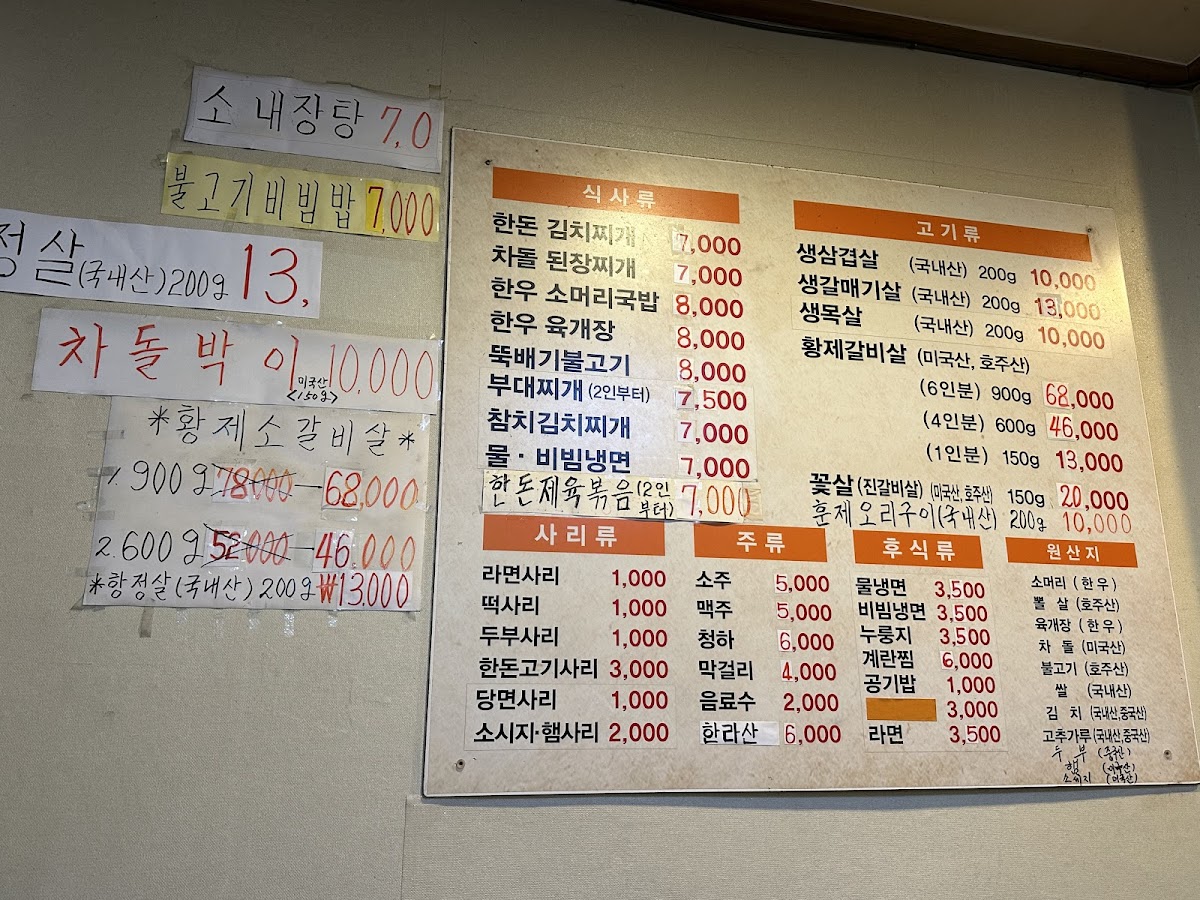 소 내장탕 7,0
불고기비빔밥 7,000
정살(국내산)200g 13,
차돌박이 미국산 <150g> 10,000
*황제소갈비살*
1.900g 78000-68,000
2.600g 52000-46,000
*항정살(국내산)200g ₩13,000
식사류
한돈 김치찌개 7,000
차돌 된장찌개 7,000
한우 소머리국밥 8,000
한우 육개장 8,000
뚝배기불고기 8,000
부대찌개 (2인부터) 7,500
참치김치찌개 7,000
물·비빔냉면 7,000
한돈제육볶음(2인부터) 7,000
고기류
생삼겹살 (국내산) 200g 10,000
생갈매기살 (국내산) 200g 13,000
생목살 (국내산) 200g 10,000
황제갈비살 (미국산, 호주산)
(6인분) 900g 68,000
(4인분) 600g 46,000
(1인분) 150g 13,000
꽃살 (진갈비살) (미국산, 호주산) 150g 20,000
훈제오리구이(국내산) 200g 10,000
사리류
라면사리 1,000
떡사리 1,000
두부사리 1,000
한돈고기사리 3,000
당면사리 1,000
소시지·햄사리 2,000
주류
소주 5,000
맥주 5,000
청하 6,000
막걸리 4,000
음료수 2,000
한라산 6,000
후식류
물냉면 3,500
비빔냉면 3,500
누룽지 3,500
계란찜 6,000
공기밥 1,000
3,000
라면 3,500
원산지
소머리 (한우)
뽈 살 (호주산)
육개장 (한우)
차 돌 (미국산)
불고기 (호주산)
쌀 (국내산)
김 치 (국내산,중국산)
고추가루 (국내산,중국산)
두 부 (중국산)
햄 (미국산)
소시지 (미국산)